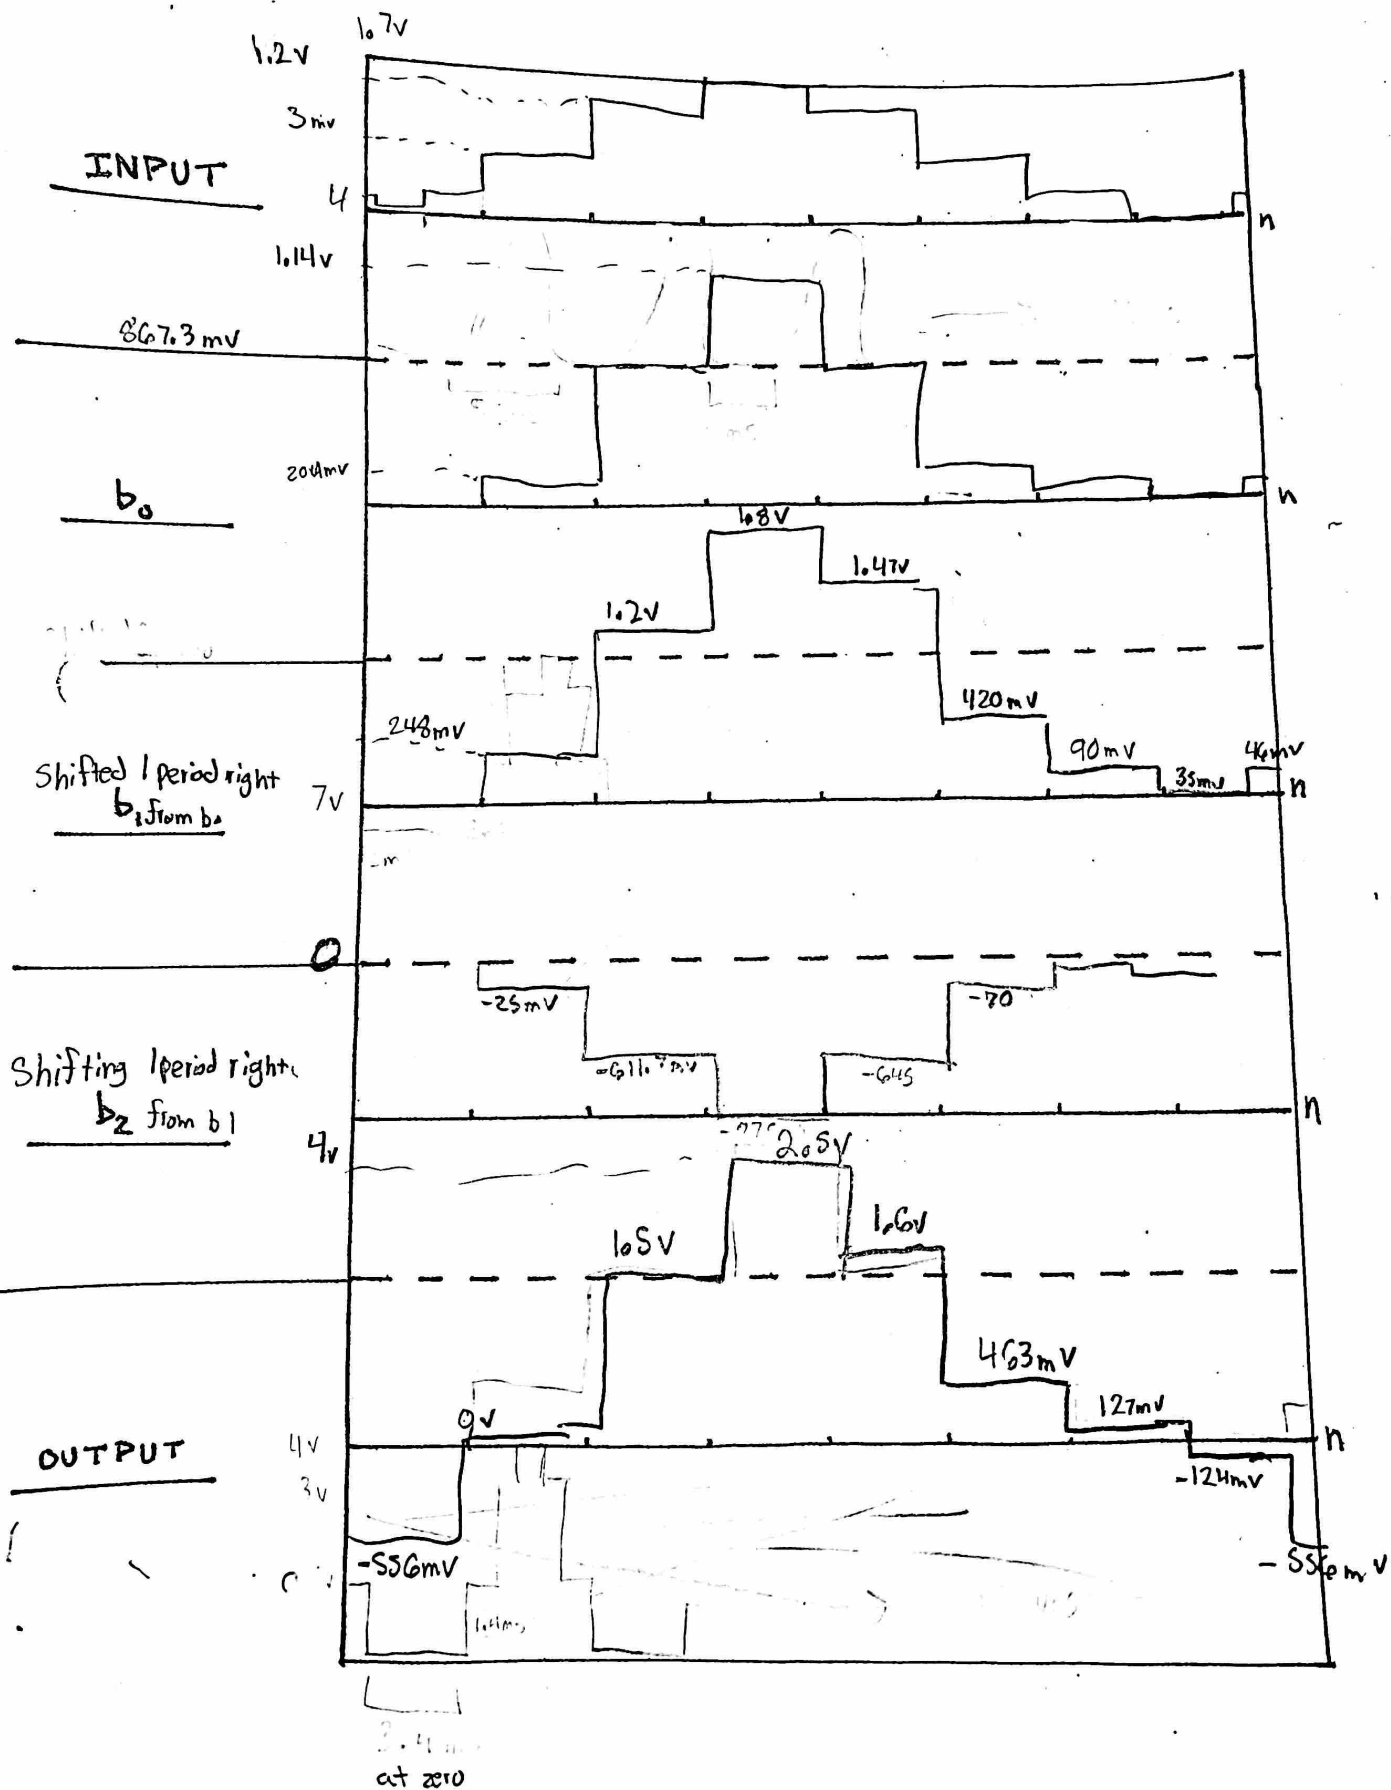 1.7v
1.2v
3mv
INPUT
4
n
1.14v
867.3mv
204mv
b₀
n
1.8v
1.47v
1.2v
420mv
248mv
90mv
46mv
35mv
Shifted 1 period right
7v
n
b₁ from b₀
0
-25mV
-70
-611.7mv
-645
Shifting 1 period right
b₂ from b1
n
4v
2.5v
1.6v
1.5v
463mV
127mv
0v
4v
n
OUTPUT
3v
-124mV
-556mV
-556mV
at zero